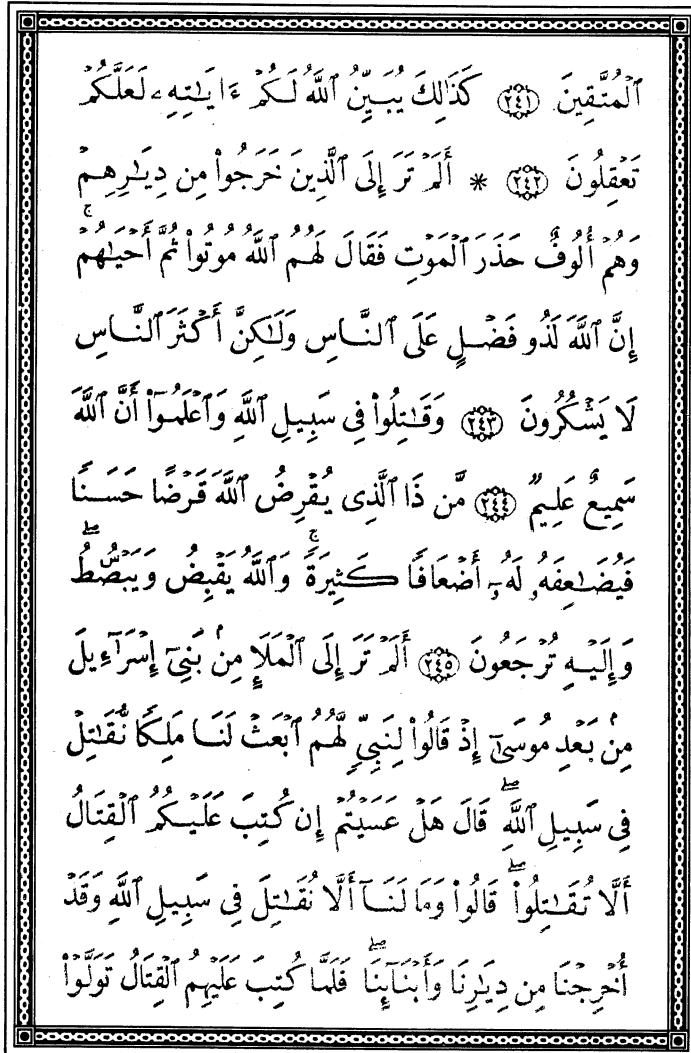 ٱلْمُتَّقِينَ ﴿٢٤١﴾ كَذَٰلِكَ يُبَيِّنُ ٱللَّهُ لَكُمْ ءَايَـٰتِهِۦ لَعَلَّكُمْ
تَعْقِلُونَ ﴿٢٤٢﴾ * أَلَمْ تَرَ إِلَى ٱلَّذِينَ خَرَجُوا۟ مِن دِيَـٰرِهِمْ
وَهُمْ أُلُوفٌ حَذَرَ ٱلْمَوْتِ فَقَالَ لَهُمُ ٱللَّهُ مُوتُوا۟ ثُمَّ أَحْيَـٰهُمْ ۚ
إِنَّ ٱللَّهَ لَذُو فَضْلٍ عَلَى ٱلنَّاسِ وَلَـٰكِنَّ أَكْثَرَ ٱلنَّاسِ
لَا يَشْكُرُونَ ﴿٢٤٣﴾ وَقَـٰتِلُوا۟ فِى سَبِيلِ ٱللَّهِ وَٱعْلَمُوٓا۟ أَنَّ ٱللَّهَ
سَمِيعٌ عَلِيمٌ ﴿٢٤٤﴾ مَّن ذَا ٱلَّذِى يُقْرِضُ ٱللَّهَ قَرْضًا حَسَنًا
فَيُضَـٰعِفَهُۥ لَهُۥٓ أَضْعَافًا كَثِيرَةً ۚ وَٱللَّهُ يَقْبِضُ وَيَبْصُۜطُ ۖ
وَإِلَيْهِ تُرْجَعُونَ ﴿٢٤٥﴾ أَلَمْ تَرَ إِلَى ٱلْمَلَإِ مِنۢ بَنِىٓ إِسْرَٰٓءِيلَ
مِنۢ بَعْدِ مُوسَىٰٓ إِذْ قَالُوا۟ لِنَبِىٍّ لَّهُمُ ٱبْعَثْ لَنَا مَلِكًا نُّقَـٰتِلْ
فِى سَبِيلِ ٱللَّهِ ۖ قَالَ هَلْ عَسَيْتُمْ إِن كُتِبَ عَلَيْكُمُ ٱلْقِتَالُ
أَلَّا تُقَـٰتِلُوا۟ ۖ قَالُوا۟ وَمَا لَنَآ أَلَّا نُقَـٰتِلَ فِى سَبِيلِ ٱللَّهِ وَقَدْ
أُخْرِجْنَا مِن دِيَـٰرِنَا وَأَبْنَآئِنَا ۖ فَلَمَّا كُتِبَ عَلَيْهِمُ ٱلْقِتَالُ تَوَلَّوْا۟